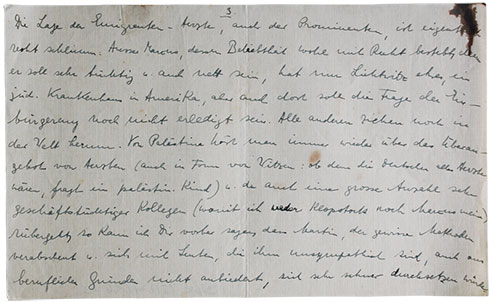 3
Die Lage der Emigranten-Ärzte, auch der Prominenten, ist eigentl.
recht schlimm. Ausser Marcus, dessen Beliebtheit wohl mit Recht besteht, denn
er soll sehr tüchtig u. auch nett sein, hat nur Lichtwitz etwas, ein
jüd. Krankenhaus in Amerika, aber auch dort soll die Frage der Ein-
bürgerung noch nicht erledigt sein. Alle anderen ziehen noch in
der Welt herum. Von Palästina hört man immer wieder über das Überan-
gebot von Ärzten (auch in Form von Witzen: ob denn die Deutschen alle Ärzte
wären, fragt ein palästin. Kind) u. da auch eine grosse Anzahl sehr
geschäftstüchtiger Kollegen (womit ich weder Klopstock noch Marcus meine)
rübergeht, so kann ich Dir vorher sagen, dass Martin, der gewisse Methoden
verabscheut u. sich mit Leuten, die ihm unsympathisch sind, auch aus
beruflichen Gründen nicht anbiedert, sich sehr schwer durchsetzen würde